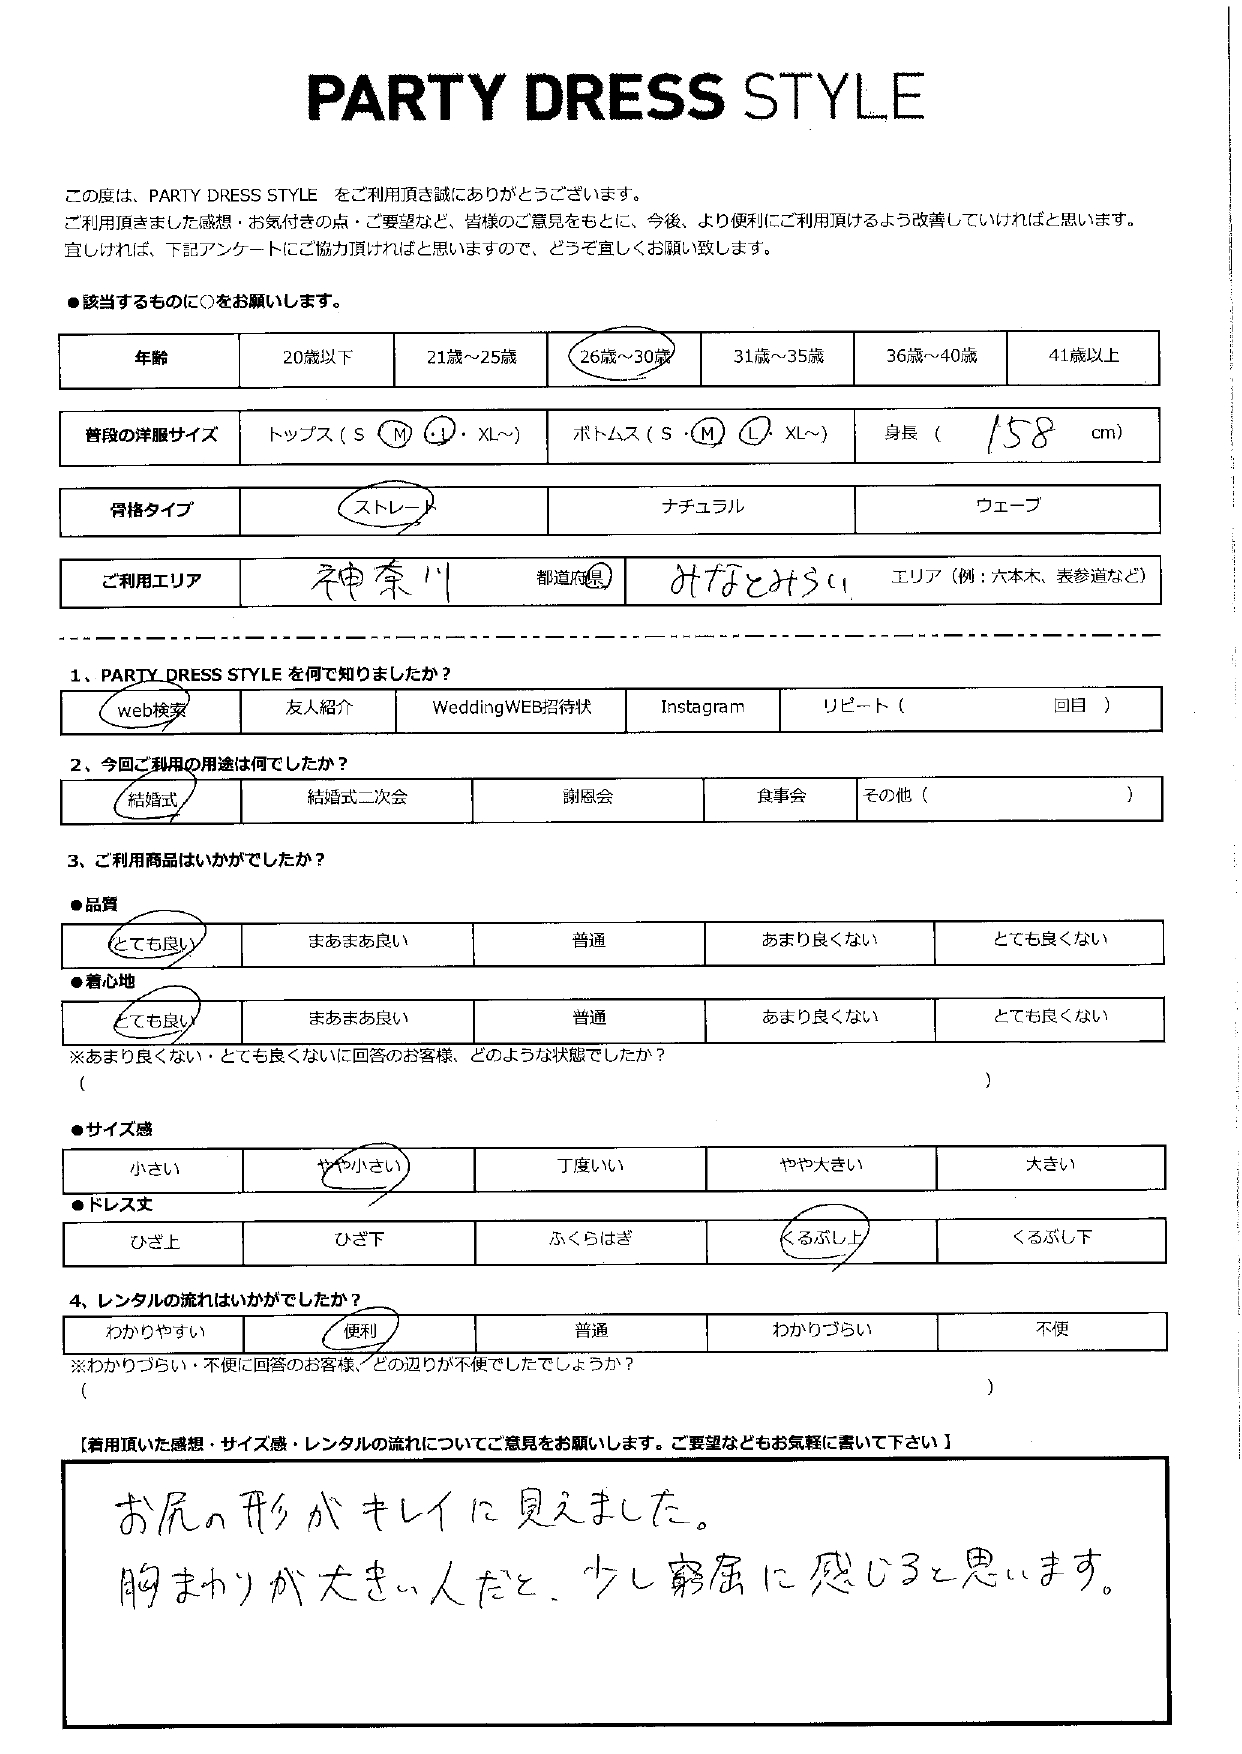 PARTY DRESS STYLE
この度は、PARTY DRESS STYLE をご利用頂き誠にありがとうございます。
ご利用頂きました感想・お気付きの点・ご要望など、皆様のご意見をもとに、今後、より便利にご利用頂けるよう改善していければと思います。
宜しければ、下記アンケートにご協力頂ければと思いますので、どうぞ宜しくお願い致します。
●該当するものに○をお願いします。
年齢 20歳以下 21歳～25歳 26歳～30歳 31歳～35歳 36歳～40歳 41歳以上
普段の洋服サイズ トップス（ S ・ M ・ L ・ XL～） ボトムス（ S ・ M ・ L ・ XL～） 身長 （ 158 cm）
骨格タイプ ストレート ナチュラル ウェーブ
ご利用エリア 神奈川 都道府県 みなとみらい エリア（例：六本木、表参道など）
1、PARTY DRESS STYLE を何で知りましたか？
web検索 友人紹介 WeddingWEB招待状 Instagram リピート（ 回目 ）
2、今回ご利用の用途は何でしたか？
結婚式 結婚式二次会 謝恩会 食事会 その他（ ）
3、ご利用商品はいかがでしたか？
●品質
とても良い まあまあ良い 普通 あまり良くない とても良くない
●着心地
とても良い まあまあ良い 普通 あまり良くない とても良くない
※あまり良くない・とても良くないに回答のお客様、どのような状態でしたか？
（ ）
●サイズ感
小さい やや小さい 丁度いい やや大きい 大きい
●ドレス丈
ひざ上 ひざ下 ふくらはぎ くるぶし上 くるぶし下
4、レンタルの流れはいかがでしたか？
わかりやすい 便利 普通 わかりづらい 不便
※わかりづらい・不便に回答のお客様、どの辺りが不便でしたでしょうか？
（ ）
【着用頂いた感想・サイズ感・レンタルの流れについてご意見をお願いします。ご要望などもお気軽に書いて下さい】
お尻の形がキレイに見えました。
胸まわりが大きい人だと、少し窮屈に感じると思います。